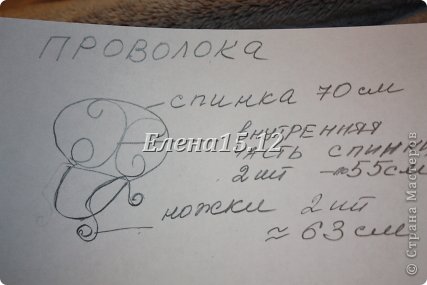 ПРОВОЛОКА
спинка 70 см
внутренняя
часть спинки
Елена15.12
2 шт ≈ 55 см
ножки 2 шт
≈ 63 см
© Страна Мастеров